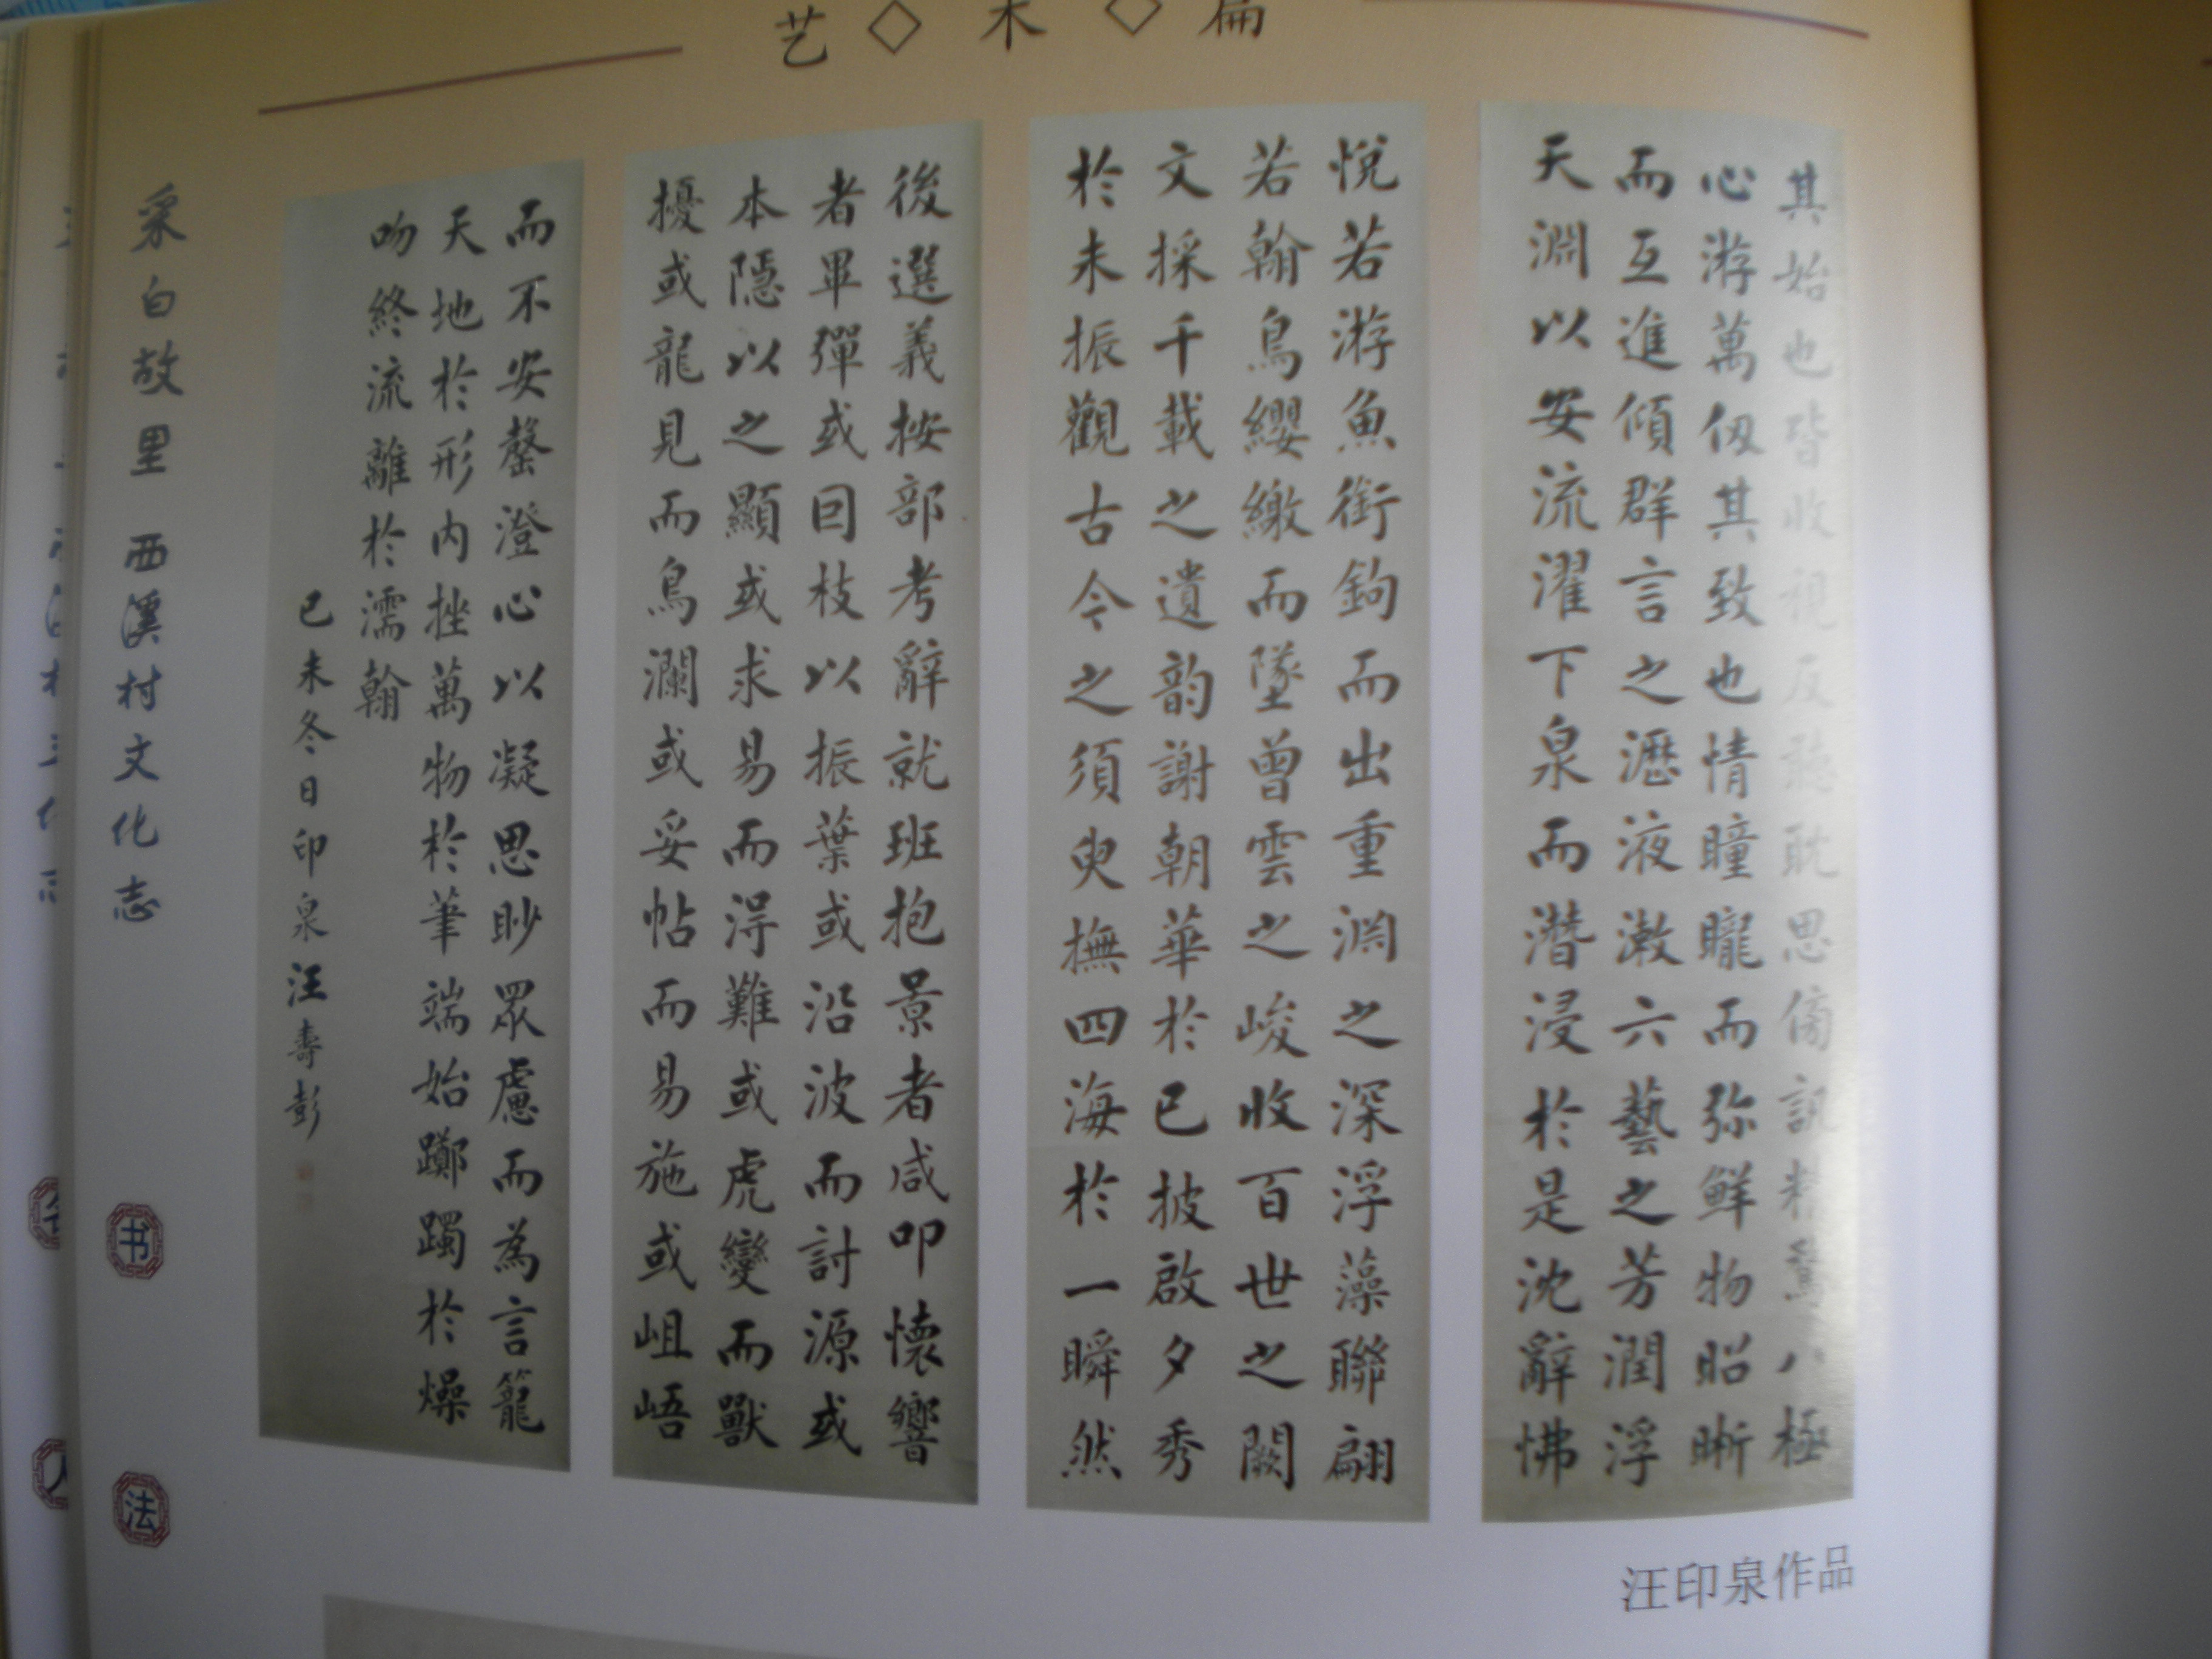 艺◇术◇篇
其始也皆收視反聽耽思傍訊精騖八極
心游萬仭其致也情瞳矓而弥鮮物昭晣
而互進傾群言之瀝液漱六藝之芳潤浮
天淵以安流濯下泉而潛浸於是沈辭怫
悅若游魚銜鉤而出重淵之深浮藻聯翩
若翰鳥纓繳而墜曾雲之峻收百世之闕
文採千載之遺韵謝朝華於已披啟夕秀
於未振觀古今之須臾撫四海於一瞬然
後選義按部考辭就班抱景者咸叩懷響
者畢彈或因枝以振葉或沿波而討源或
本隱以之顯或求易而得難或虎變而獸
擾或龍見而鳥瀾或妥帖而易施或岨峿
而不安罄澄心以凝思眇眾慮而為言籠
天地於形內挫萬物於筆端始躑躅於燥
吻終流離於濡翰
已未冬日印泉汪壽彭
采白故里 西溪村文化志
书
法
汪印泉作品